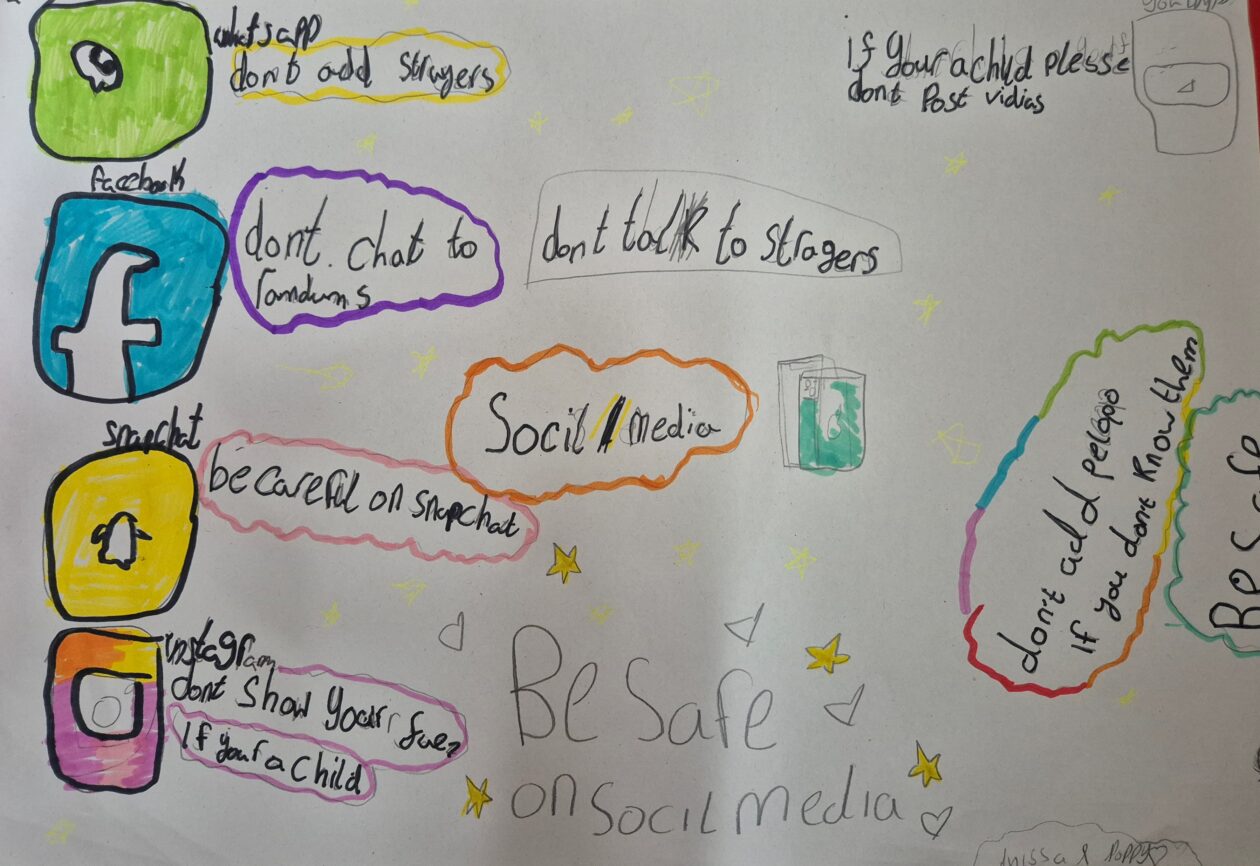 whatsapp
dont add strayers
If your a child plesse
dont Post vidias
facebook
dont chat to
randums
dont talk to stragers
Socil media
snapchat
be careful on snapchat
don't add pelopo
if you don't know them
Be Safe
instagram
dont show your face
If your a child
Be Safe
on Socil media
& Poppy